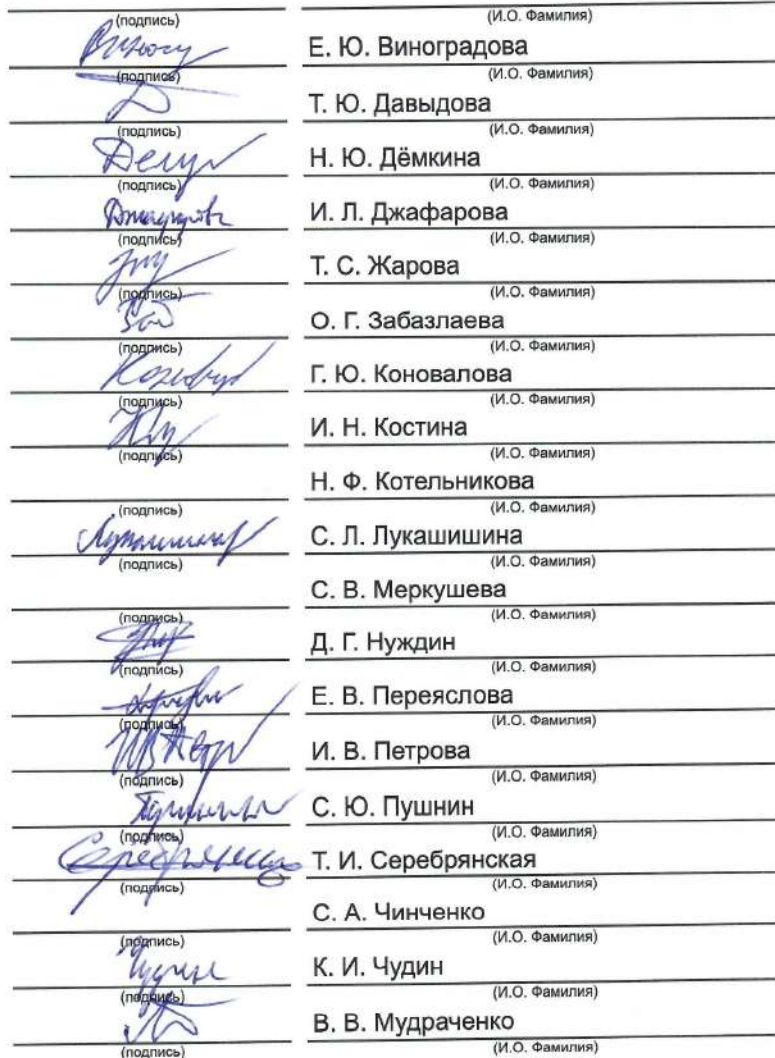 (подпись) (И.О. Фамилия)
Е. Ю. Виноградова
(подпись) (И.О. Фамилия)
Т. Ю. Давыдова
(подпись) (И.О. Фамилия)
Н. Ю. Дёмкина
(подпись) (И.О. Фамилия)
Джафарова И. Л. Джафарова
(подпись) (И.О. Фамилия)
Т. С. Жарова
(подпись) (И.О. Фамилия)
О. Г. Забазлаева
(подпись) (И.О. Фамилия)
Г. Ю. Коновалова
(подпись) (И.О. Фамилия)
И. Н. Костина
(подпись) (И.О. Фамилия)
Н. Ф. Котельникова
(подпись) (И.О. Фамилия)
С. Л. Лукашишина
(подпись) (И.О. Фамилия)
С. В. Меркушева
(подпись) (И.О. Фамилия)
Д. Г. Нуждин
(подпись) (И.О. Фамилия)
Е. В. Переяслова
(подпись) (И.О. Фамилия)
И. В. Петрова
(подпись) (И.О. Фамилия)
С. Ю. Пушнин
(подпись) (И.О. Фамилия)
Т. И. Серебрянская
(подпись) (И.О. Фамилия)
С. А. Чинченко
(подпись) (И.О. Фамилия)
К. И. Чудин
(подпись) (И.О. Фамилия)
В. В. Мудраченко
(подпись) (И.О. Фамилия)